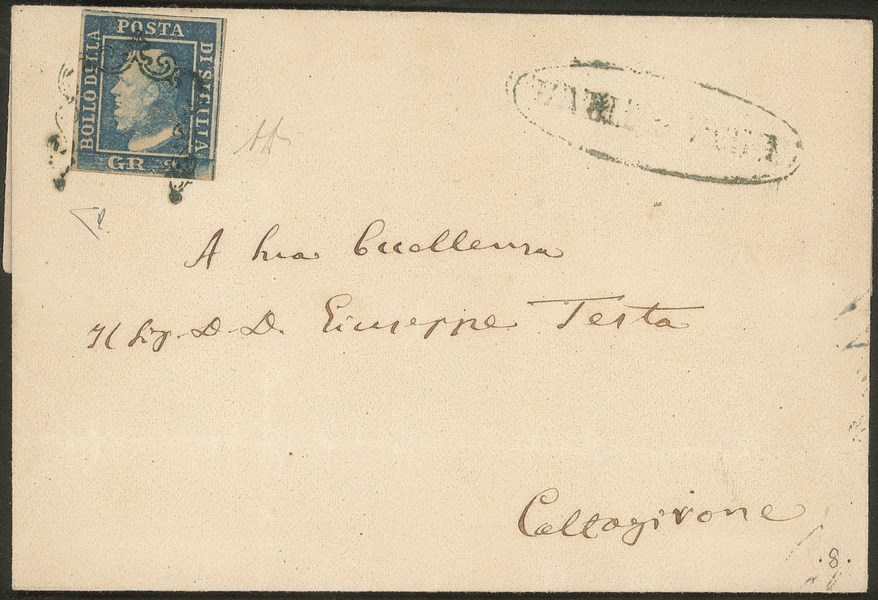 POSTA
BOLLO DELLA
DI SICILIA
GR. 2
A Sua Eccellenza
Il Sig. D. D. Giuseppe Testa
Caltagirone
.8.